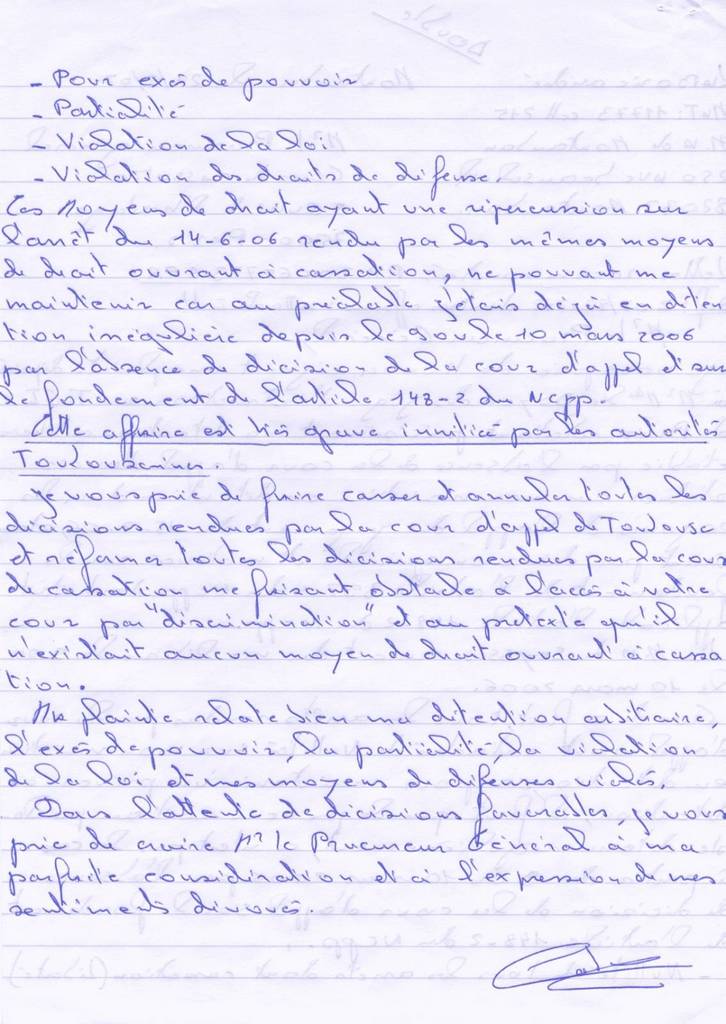 - Pour excès de pouvoir
- Partialité
- Violation de la loi
- Violation des droits de défense.
Ces Moyens de droit ayant une répercussion sur
l'arrêt du 14-6-06 rendu par les mêmes moyens
de droit ouvrant à cassation, ne pouvant me
maintenir car au préalable j'étais déjà en déten
tion irrégulière depuis le 9 ou le 10 mars 2006
par l'absence de décision de la cour d'appel et sur
le fondement de l'article 148-2 du Ncpp.
Cette affaire est très grave innitié par les autorités
Toulousaines.
Je vous prie de faire casser et annuler toutes les
décisions rendues par la cour d'appel de Toulouse
et réformer toutes les décisions rendues par la cour
de cassation me faisant obstacle à l'accès à votre
cour par "discrimination" et au prétexte qu'il
n'existait aucun moyen de droit ouvrant à cassa
tion.
Ma plainte relate bien ma détention arbitraire,
l'excès de pouvoir, la partialité, la violation
de la loi et mes moyens de défenses violés.
Dans l'attente de décisions favorables, je vous
prie de croire Mr le Procureur Général à ma
parfaite considération et à l'expression de mes
sentiments dévoués.